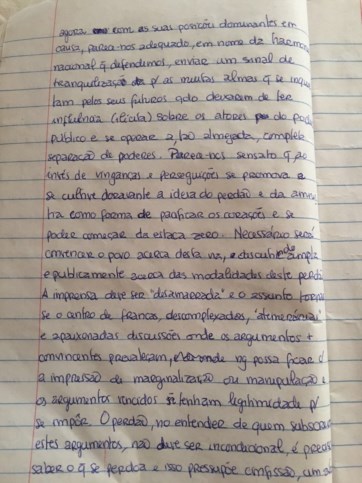 agora com as suas posições dominantes em
causa, parece-nos adequado, em nome da harmonia
racional q defendemos, enviar um sinal de
tranquilização p/ as muitas almas q se inquie
tam pelos seus futuros qdo deixarem de ter
influência (ilícita) sobre os atores do poder
público e se operar a, tão almejada, completa
separação de poderes. Parece-nos sensato q ao
invés de vinganças e perseguições se promova e
se cultive doravante a ideia do perdão e da amnis
tia como forma de pacificar os corações e se
poder começar da estaca zero. Necessário será
convencer o povo acerca desta via, e discutindo ampla
e publicamente acerca das modalidades deste perdão
A imprensa deve ser "desamarrada" e o assunto torna
se o antro de francas, descomplexadas,
e apaixonadas discussões onde os argumentos +
convincentes prevaleçam, e onde ng possa ficar c/
a impressão de marginalização ou manipulação e
os argumentos vencidos ñ tenham legitimidade p/
se impôr. O perdão, no entender de quem subscreve
estes argumentos, não deve ser incondicional, é preciso
saber o q se perdoa e isso pressupõe confissão, um